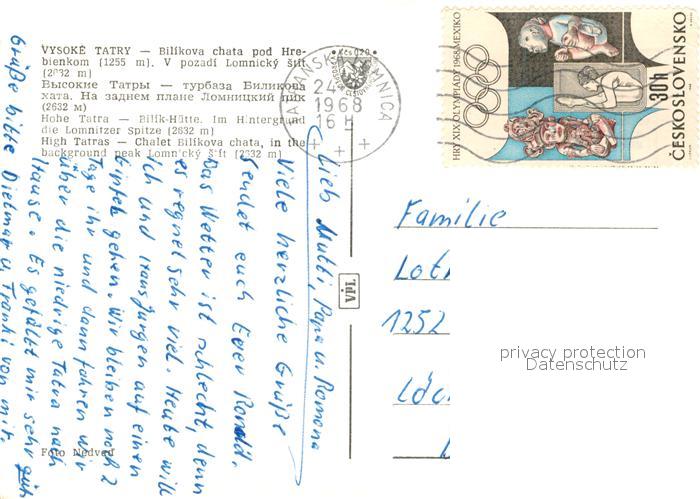 VYSOKÉ TATRY — Bilíkova chata pod Hre-
bienkom (1255 m). V pozadí Lomnický štít
(2632 m)
Высокие Татры — турбаза Биликова
хата. На заднем плане Ломницкий пик
(2632 м)
Hohe Tatra — Bilík-Hütte. Im Hintergrund
die Lomnitzer Spitze (2632 m)
High Tatras — Chalet Bilíkova chata, in the
background peak Lomnický štít (2632 m)
TATRANSKÁ LOMNICA
Kčs 0,20
24
1968
16 H
HRY XIX. OLYMPIÁDY 1968 MEXIKO
30h
ČESKOSLOVENSKO
Lieb Mutti, Papa u. Romona
Viele herzliche Grüße
sendet euch Euer Ronald.
Das Wetter ist schlecht, denn
es regnet sehr viel. Heute will
ich und Jungen auf einen
Gipfel gehen. Wir bleiben noch 2
Tage hier und dann fahren wir
über die niedrige Tatra nach
Hause. Es gefällt mir sehr gut
Grüße bitte Dietmar u. Franki von mir.
VPL
Familie
Lot
1252
privacy protection
Datenschutz
Foto Nedveď